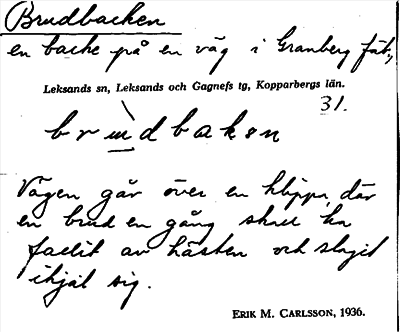 Brudbacken
en backe på en väg i Granberg fäb.,
Leksands sn, Leksands och Gagnefs tg, Kopparbergs län.
31.
Vägen går över en klippa, där
en brud en gång skall ha
fallit av hästen och slagit
ihjäl sig.
ERIK M. CARLSSON, 1936.